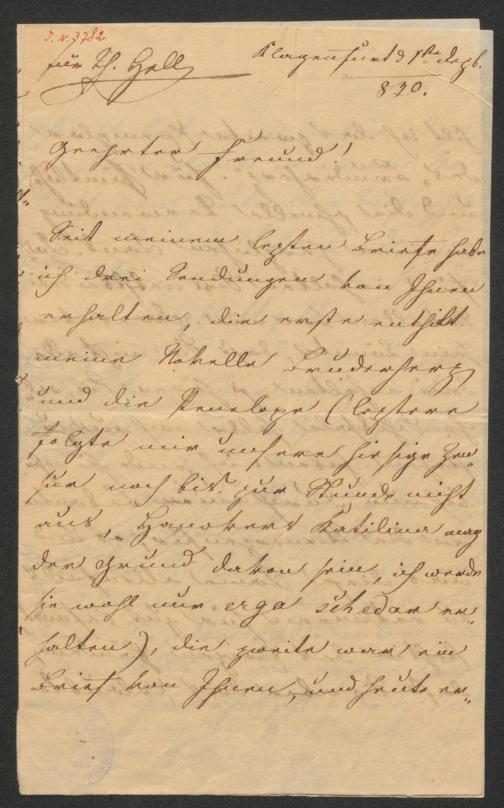 I. N. 3782
für Th. Hell
Klagenfurt d 1ten Dezb.
830.
Geehrter Freund!
Seit meinem letzten Briefe habe
ich drei Sendungen von Ihnen
erhalten, die erste enthielt
meine Novelle Bruderherz
und die Penelope (letztere
folgte mir unsere hiesige Zen-
sur noch bis zur Stunde nicht
aus, Katilina mag
der Grund davon sein, ich werde
sie wohl nur erga schedam er-
halten), die zweite war ein
Brief von Ihnen, und heute er-